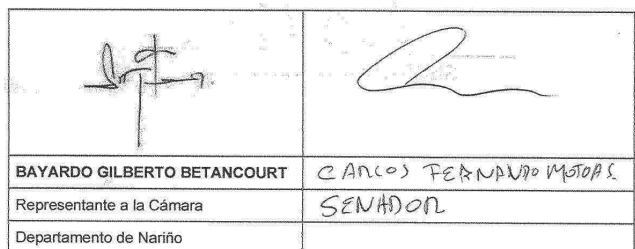 BAYARDO GILBERTO BETANCOURT
CARLOS FERNANDO MOTOA S.
Representante a la Cámara
SENADOR
Departamento de Nariño